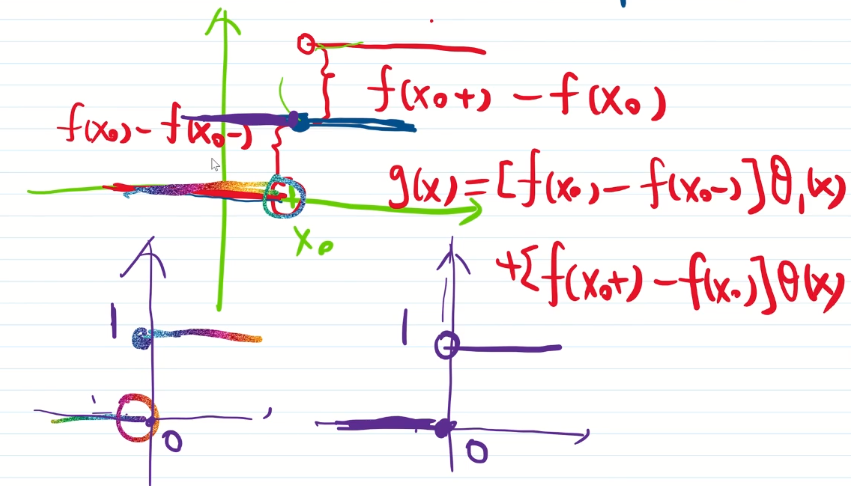 f(x₀+) − f(x₀)
f(x₀) − f(x₀−)
g(x) = [f(x₀) − f(x₀−)]θ₁(x)
x₀
+[f(x₀+) − f(x₀)]θ(x)
1
1
0
0